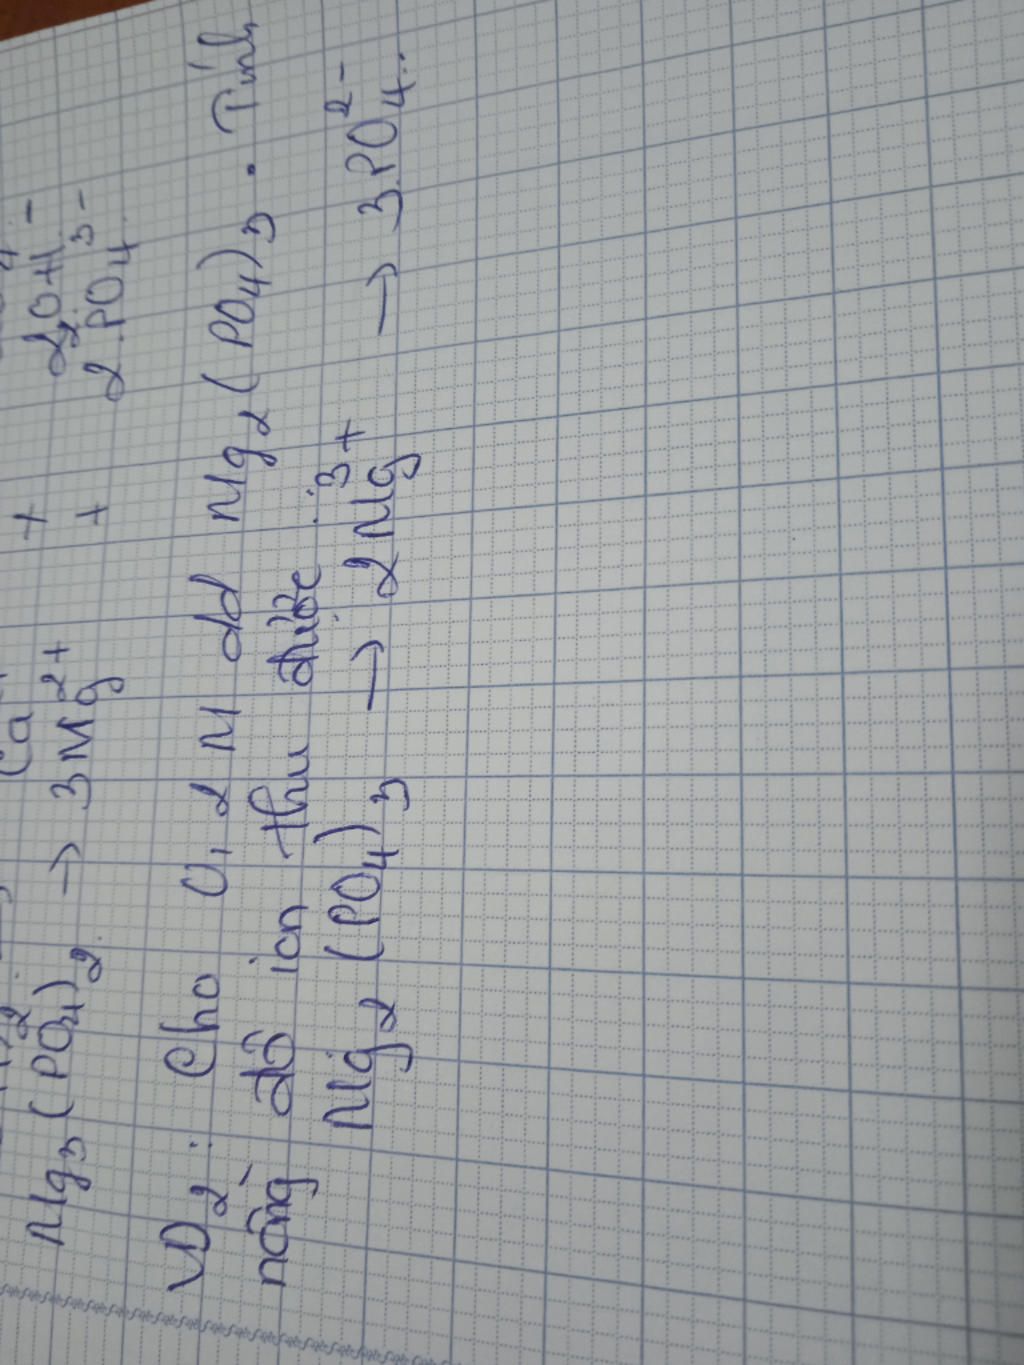 Ca +
2OH-
Mg3(PO4)2 → 3Mg2+ + 2.PO4 3-
VD2: Cho 0,2 M dd Mg2(PO4)3. Tính
nồng độ ion thu được:
Mg2(PO4)3 → 2Mg3+ → 3.PO4 2-